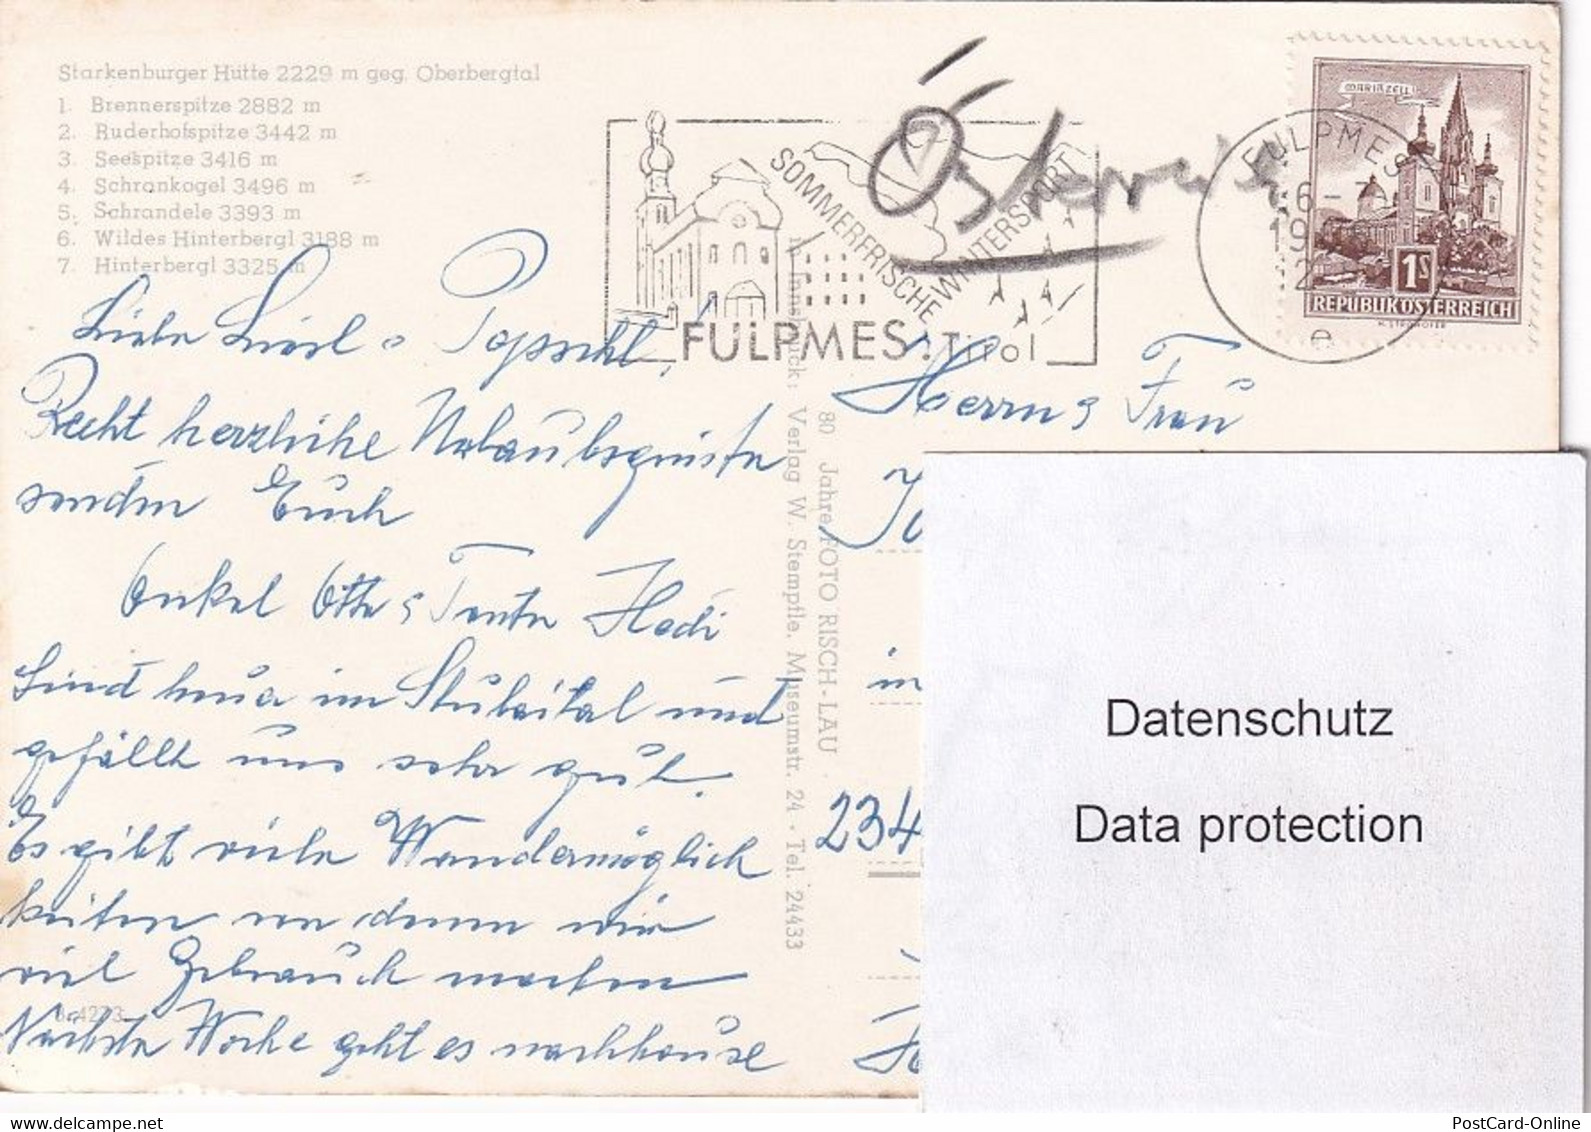 Starkenburger Hütte 2229 m geg. Oberbergtal
1. Brennerspitze 2882 m
2. Ruderhofspitze 3442 m
3. Seespitze 3416 m
4. Schrankogel 3496 m
5. Schrandele 3393 m
6. Wildes Hinterbergl 3188 m
7. Hinterbergl 3325 m
Österreich
SOMMERFRISCHE
WINTERSPORT
FULPMES. Tirol
FULPMES
MARIAZELL
1S
REPUBLIK ÖSTERREICH
Liebe Liesl
Recht herzliche Urlaubsgrüsse
senden Euch
Onkel Otto & Tante Hedi
Sind heuer im Stubeital und
gefällt uns sehr gut.
Es gibt viele Wandermöglich
keiten von denen wir
viel Gebrauch machen
Nächste Woche geht es nachhause
80 Jahre FOTO RISCH-LAU
Verlag W. Stempfle, Museumstr. 24 · Tel. 24433
Herrn & Frau
in
234
Datenschutz
Data protection
PostCard-Online